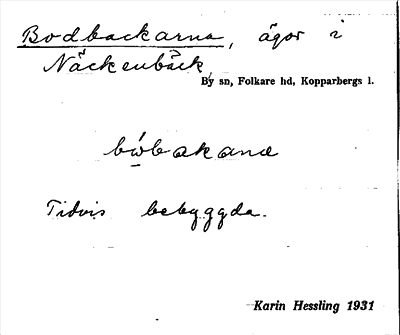 Bodbackarna, ägor i
Näckenbäck,
By sn, Folkare hd, Kopparbergs l.
bẃbakanæ
Tidvis bebyggda.
Karin Hessling 1931